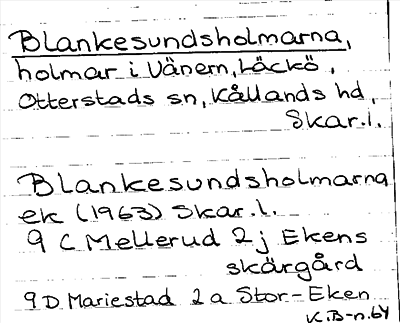 Blankesundsholmarna,
holmar i Vänern, Läckö,
Otterstads sn, Kållands hd,
Skar.l.
Blankesundsholmarna
ek (1963) Skar.l.
9 C Mellerud 2j Ekens
skärgård
9D Mariestad 2a Stor-Eken
K.B-n.64